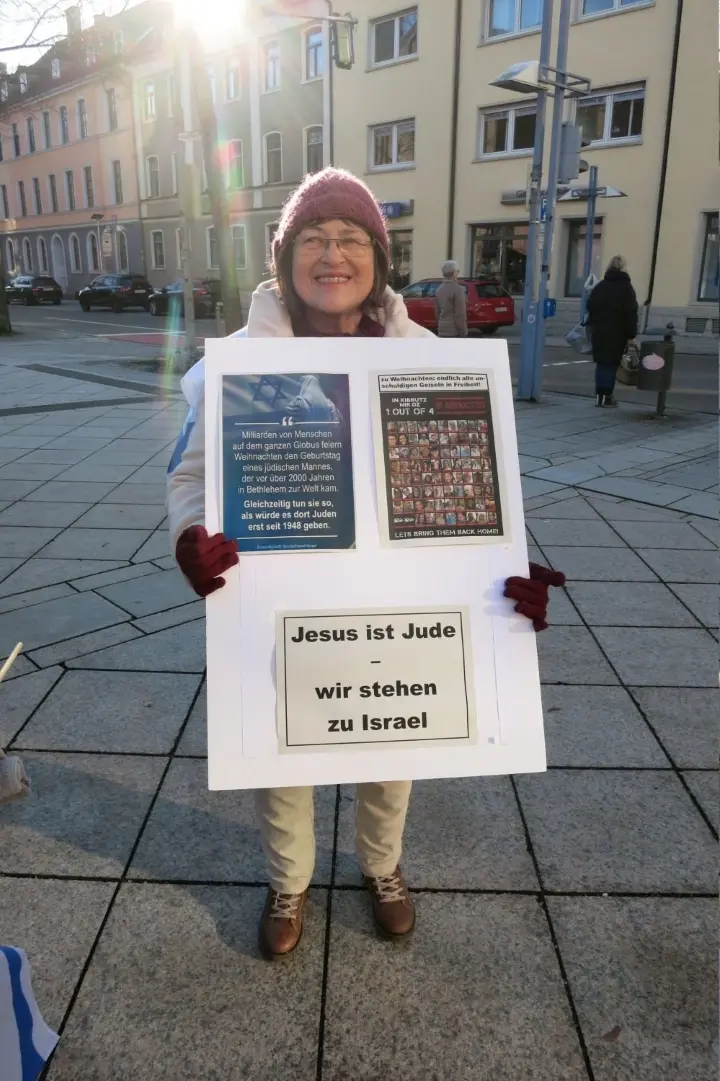 “
Milliarden von Menschen
auf dem ganzen Globus feiern
Weihnachten den Geburtstag
eines jüdischen Mannes,
der vor über 2000 Jahren
in Bethlehem zur Welt kam.
Gleichzeitig tun sie so,
als würde es dort Juden
erst seit 1948 geben.
zu Weihnachten: endlich alle un-
schuldigen Geiseln in Freiheit!
IN KIBBUTZ
NIR OZ
1 OUT OF 4
LETS BRING THEM BACK HOME!
Jesus ist Jude
–
wir stehen
zu Israel